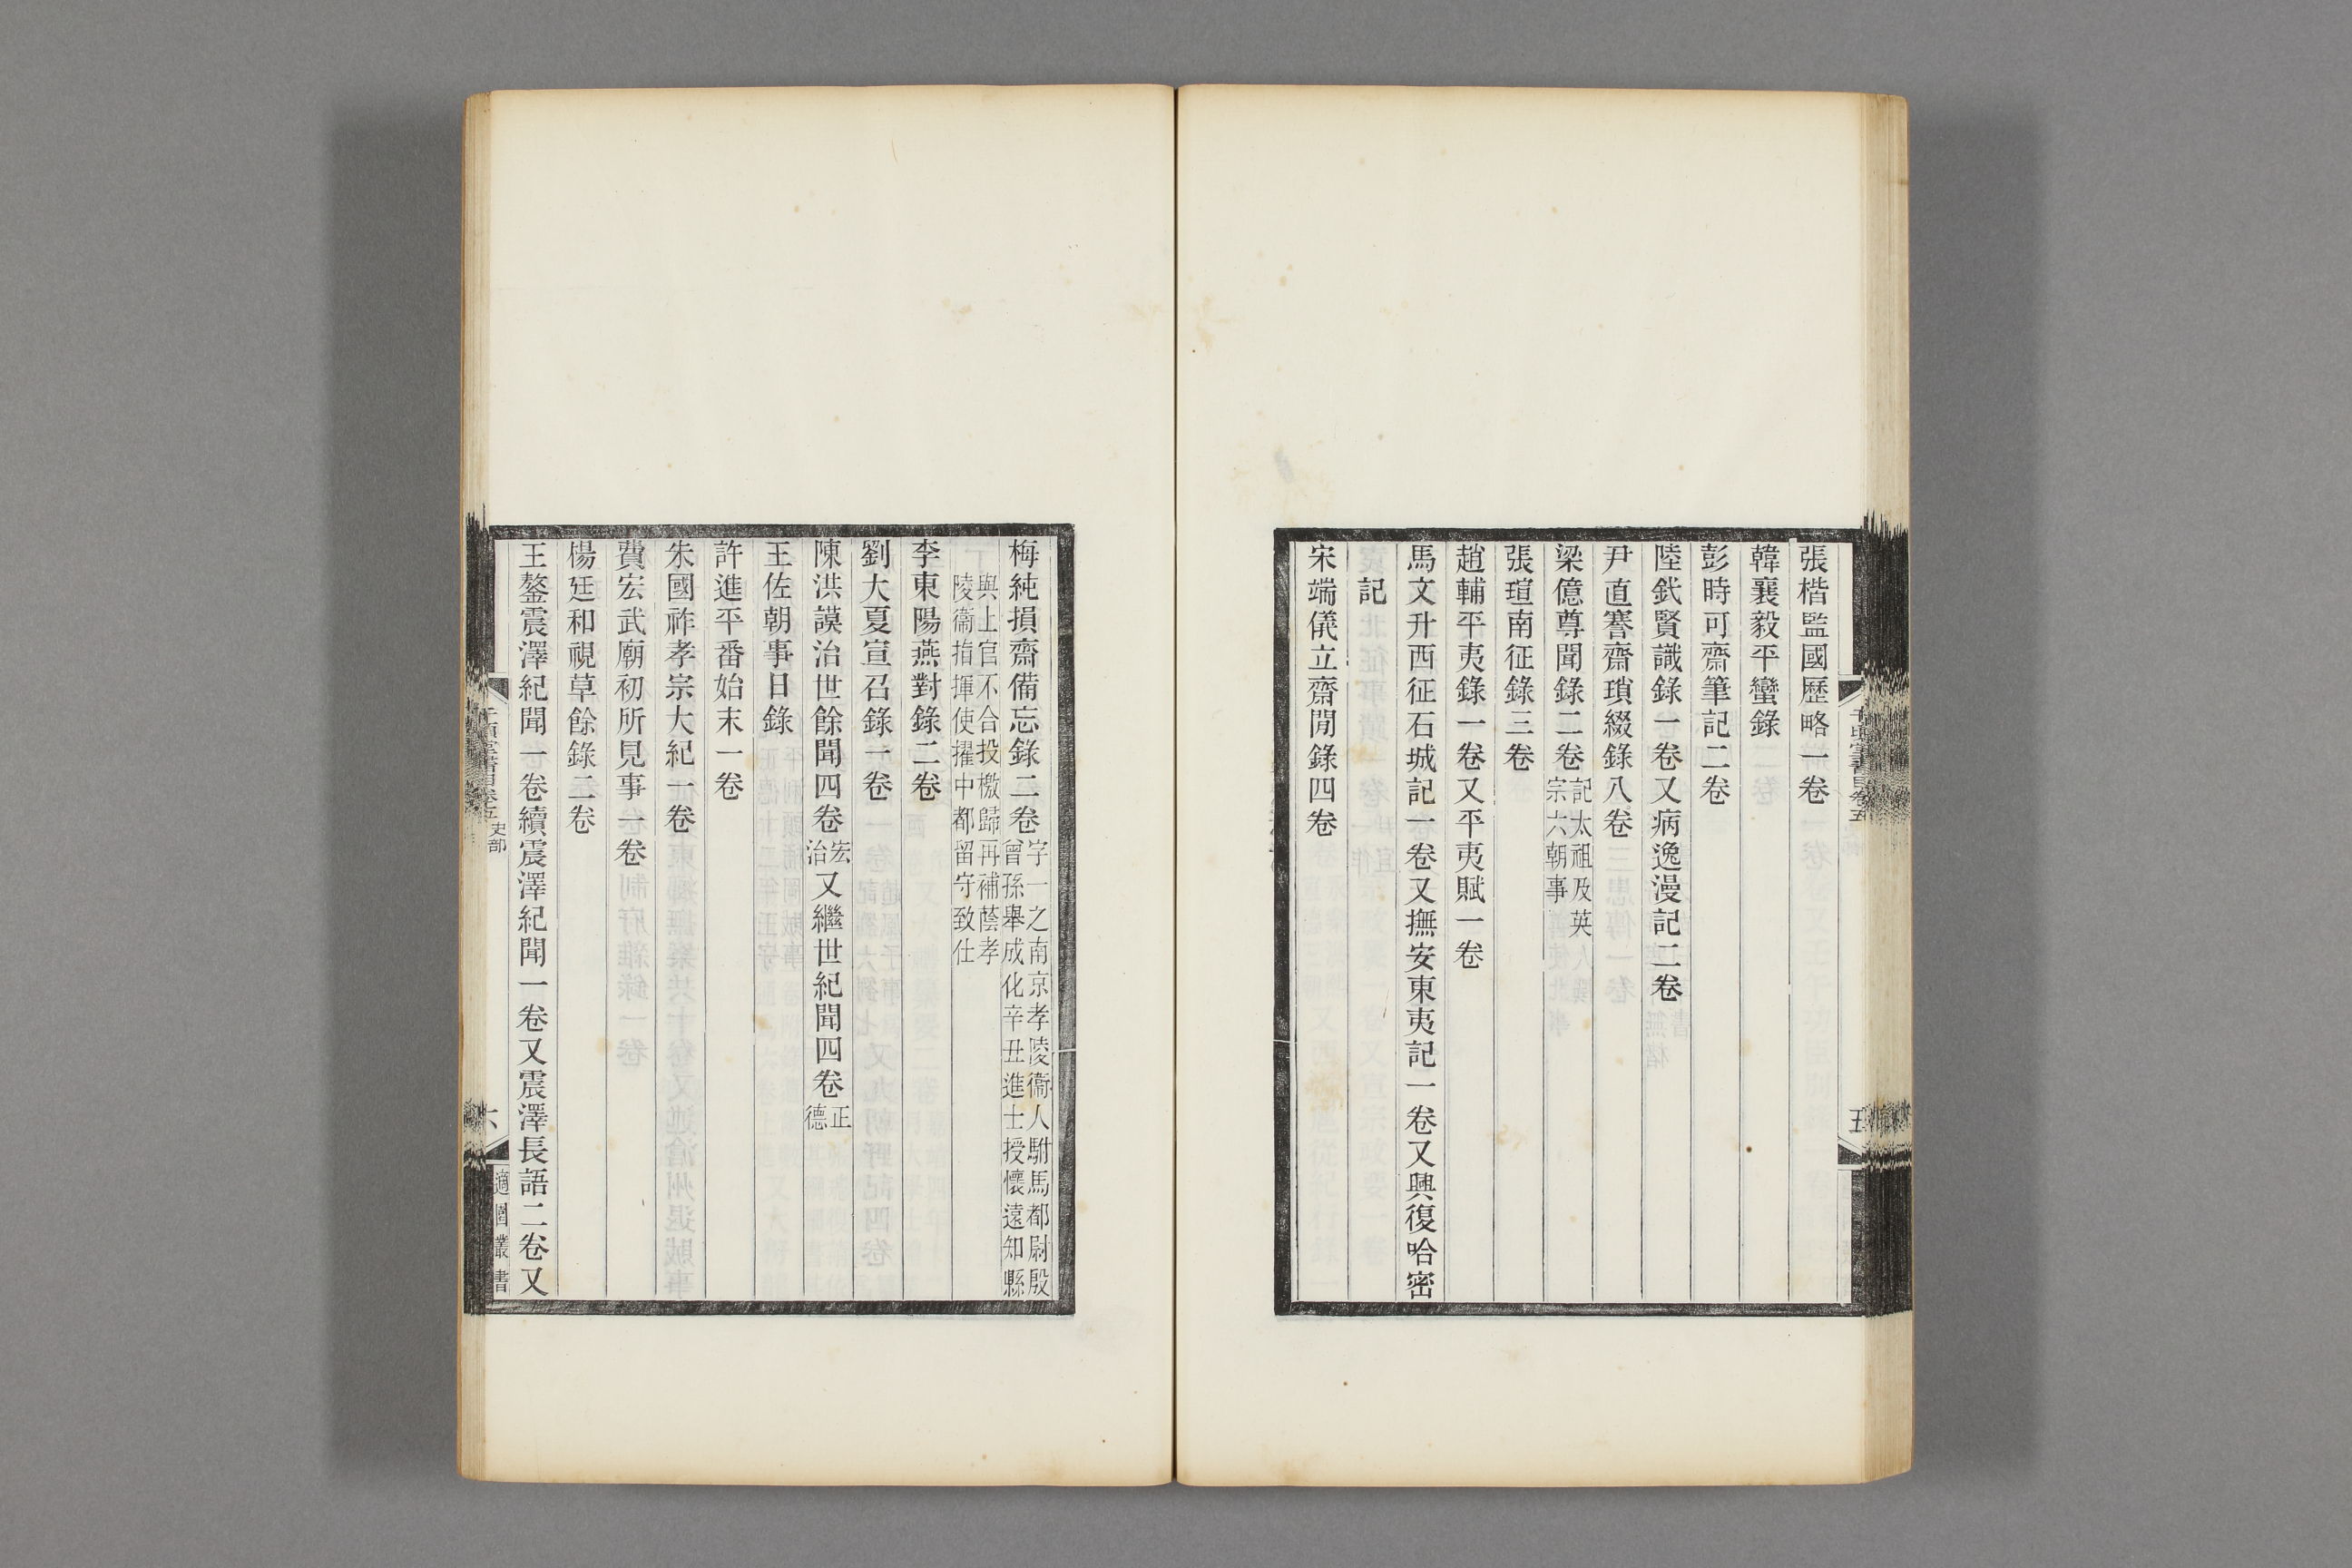 張楷監國歷略一卷
韓襄毅平蠻錄
彭時可齋筆記二卷
陸釴賢識錄一卷又病逸漫記二卷
尹直謇齋瑣綴錄八卷
梁億尊聞錄二卷記太祖及英宗六朝事
張瑄南征錄三卷
趙輔平夷錄一卷又平夷賦一卷
馬文升西征石城記一卷又撫安東夷記一卷又興復哈密
記
宋端儀立齋閒錄四卷
梅純損齋備忘錄二卷字一之南京孝陵衞人駙馬都尉殷曾孫舉成化辛丑進士授懷遠知縣
與上官不合投檄歸再補蔭孝陵衞指揮使擢中都留守致仕
李東陽燕對錄二卷
劉大夏宣召錄一卷
陳洪謨治世餘聞四卷宏治又繼世紀聞四卷正德
王佐朝事日錄
許進平番始末一卷
朱國祚孝宗大紀一卷
費宏武廟初所見事一卷
楊廷和視草餘錄二卷
王鏊震澤紀聞一卷續震澤紀聞一卷又震澤長語二卷又
千頃堂書目卷五 史部
六
適園叢書